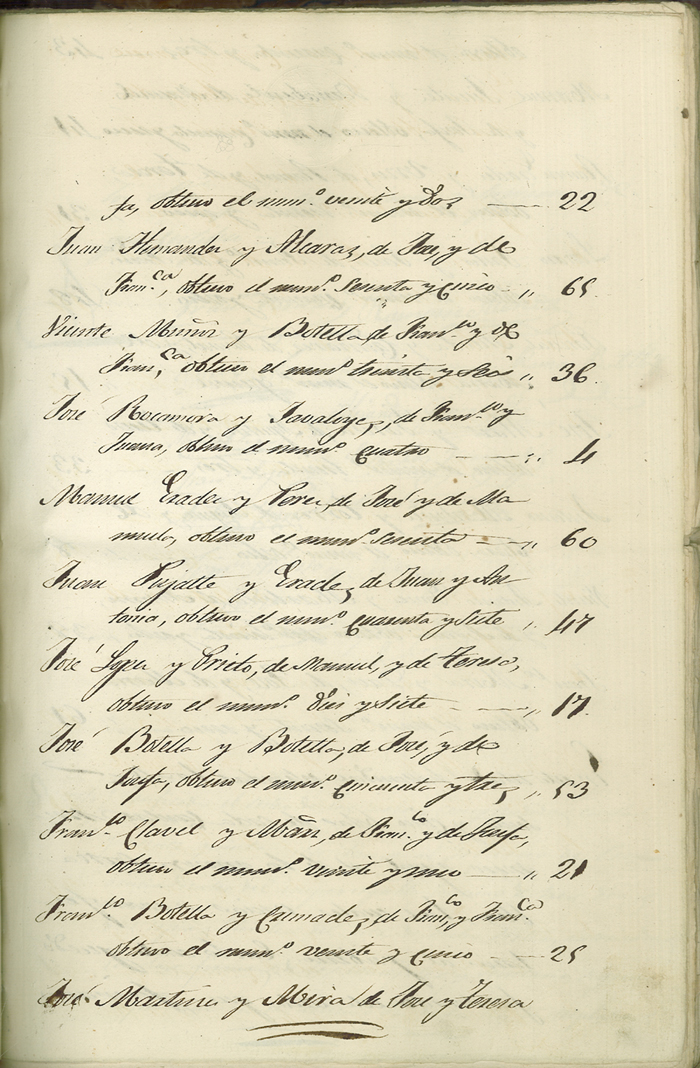 fa, obtuvo el num.º veinte y dos — 22
Juan Hernandez y Alcaraz, de José y de
Fran.ca, obtuvo el num.º Sesenta y cinco - „ 65.
Vicente Muñoz y Botella, de Fran.co y de
Fran.ca obtuvo el num.º treinta y Seis „ 36.
José Rocamora y Javaloyez, de Fran.co y
Juana, obtuvo el num.º cuatro — „ 4
Manuel Erades y Perez, de José y de Ma
nuela, obtuvo el num.º Sesenta — „ 60
Juan Pujalte y Erades, de Juan y An
tonia, obtuvo el num.º cuarenta y Siete „ 47
José Lopez y Prieto, de Manuel, y de Teresa,
obtuvo el num.º dies y Siete — „ 17.
José Botella y Botella, de José, y de
Josefa, obtuvo el num.º cincuenta y tres, „ 53
Fran.co Clavel y de Fran.co y de Josefa,
obtuvo el num.º veinte y uno — „ 21
Fran.co Botella y de Fran.co y Fran.ca
obtuvo el num.º veinte y cinco — 25
José Martinez y Mira de José y Teresa